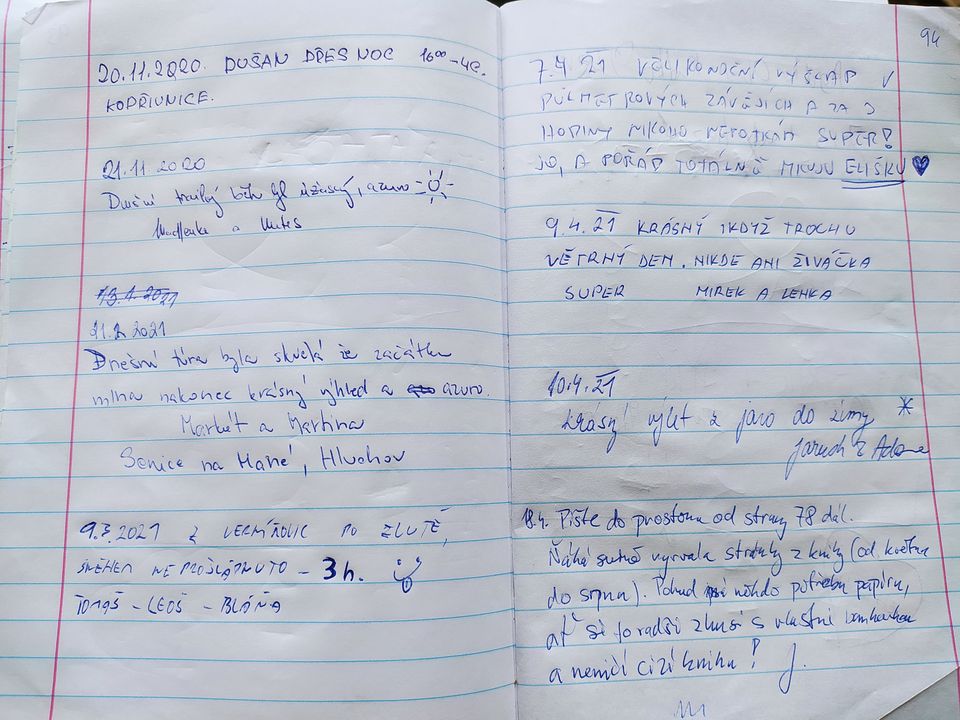 20.11.2020. DUŠAN PŘES NOC 16⁰⁰ - 
KOPŘIVNICE.
21.11.2020
Dnešní byl úžasný, azuro
a
13.1.2021
21.2.2021
Dnešní túra byla skvělá ze začátku
mlha nakonec krásný výhled a azuro.
Markét a Martina
Senice na Hané, Hluchov
9.3.2021 Z VERMÍŘOVIC PO ŽLUTÉ,
SNĚHEM NEPROŠLÁPNUTO - 3h.
TOMÁŠ - LEOŠ - BLÁŇA
94
7.4.21 VELIKONOČNÍ VÝŠLAP V
PŮLMETROVÝCH ZÁVĚJÍCH A ZA 3
HODINY NIKOHO NEPOTKÁM SUPER!
JO, A POŘÁD TOTÁLNĚ MILUJU ELIŠKU
9.4.21 KRÁSNÝ IKDYŽ TROCHU
VĚTRNÝ DEN. NIKDE ANI ŽIVÁČKA
SUPER MIREK A LENKA
10.4.21
krásný výlet z jaro do zimy
18.4. Pište do prostoru od strany 78 dál.
Ňáhá vyrvala stránky z knihy (od května
do srpna). Pokud někdo potřebu papíru,
ať si to radši zkusí s vlastní
a neničí cizí knihu! J.